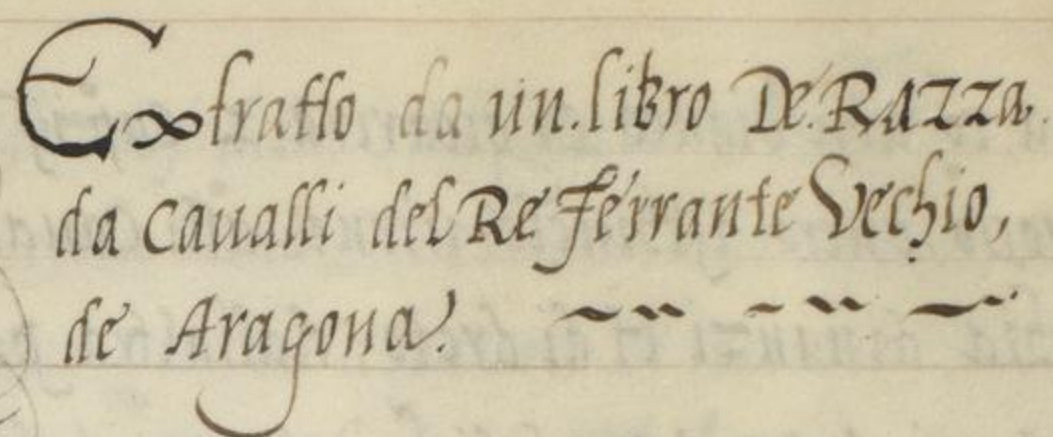 Extratto da un. libro De. Razza.
da cavalli del Re Ferrante Vechio,
de Aragona.